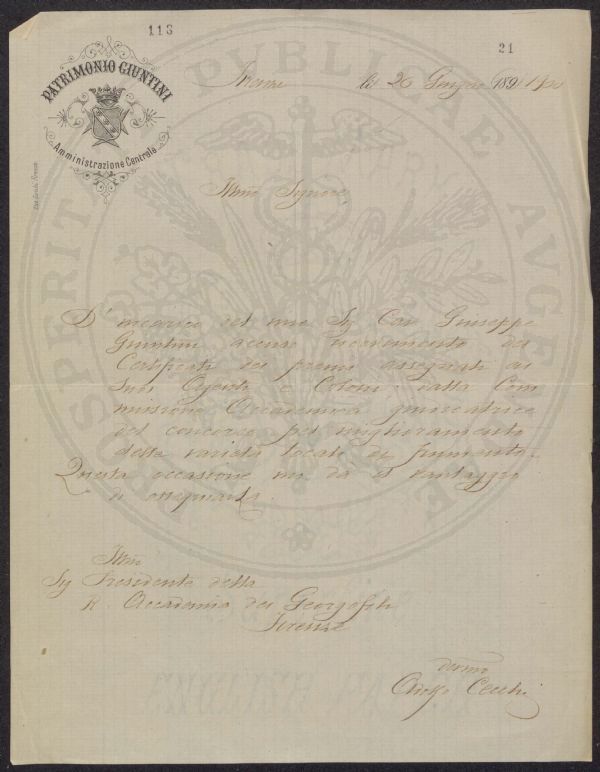 113
21
PATRIMONIO GIUNTINI
Amministrazione Centrale
Firenze li 26 Giugno 189
Illmo Signore
D'incarico del mio Sig Cav Giuseppe
Giuntini accuso ricevimento dei
Certificati dei premi assegnati ai
Suoi Agenti e Coloni, dalla Com
missione Accademica giudicatrice
del concorso pel miglioramento
delle varietà locali di frumento.
Questa occasione mi dà il vantaggio
di ossequiarla.
Illmo
Sig Presidente della
R. Accademia dei Georgofili
Firenze
devmo
Adolfo Cecchi
PROSPERITATI PVBLICAE AVGENDAE